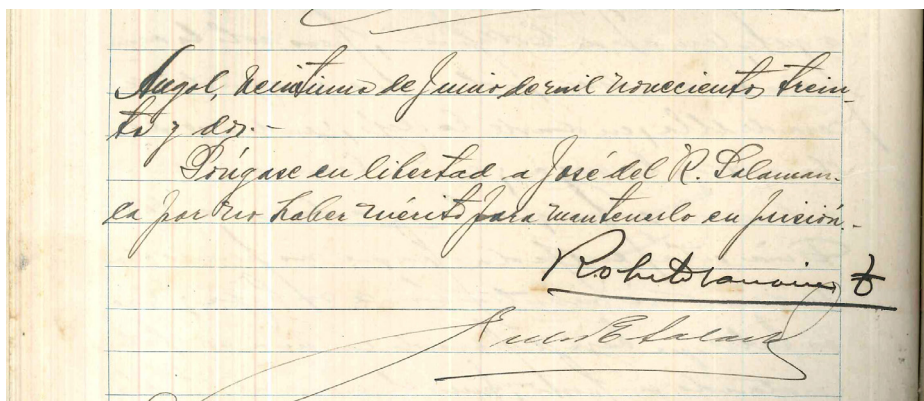 Angol, veintiuno de Junio de mil novecientos trein-
ta y dos.-
Póngase en libertad a José del R. Salaman-
ca por no haber mérito para mantenerlo en prisión.-
Roberto
E Salas